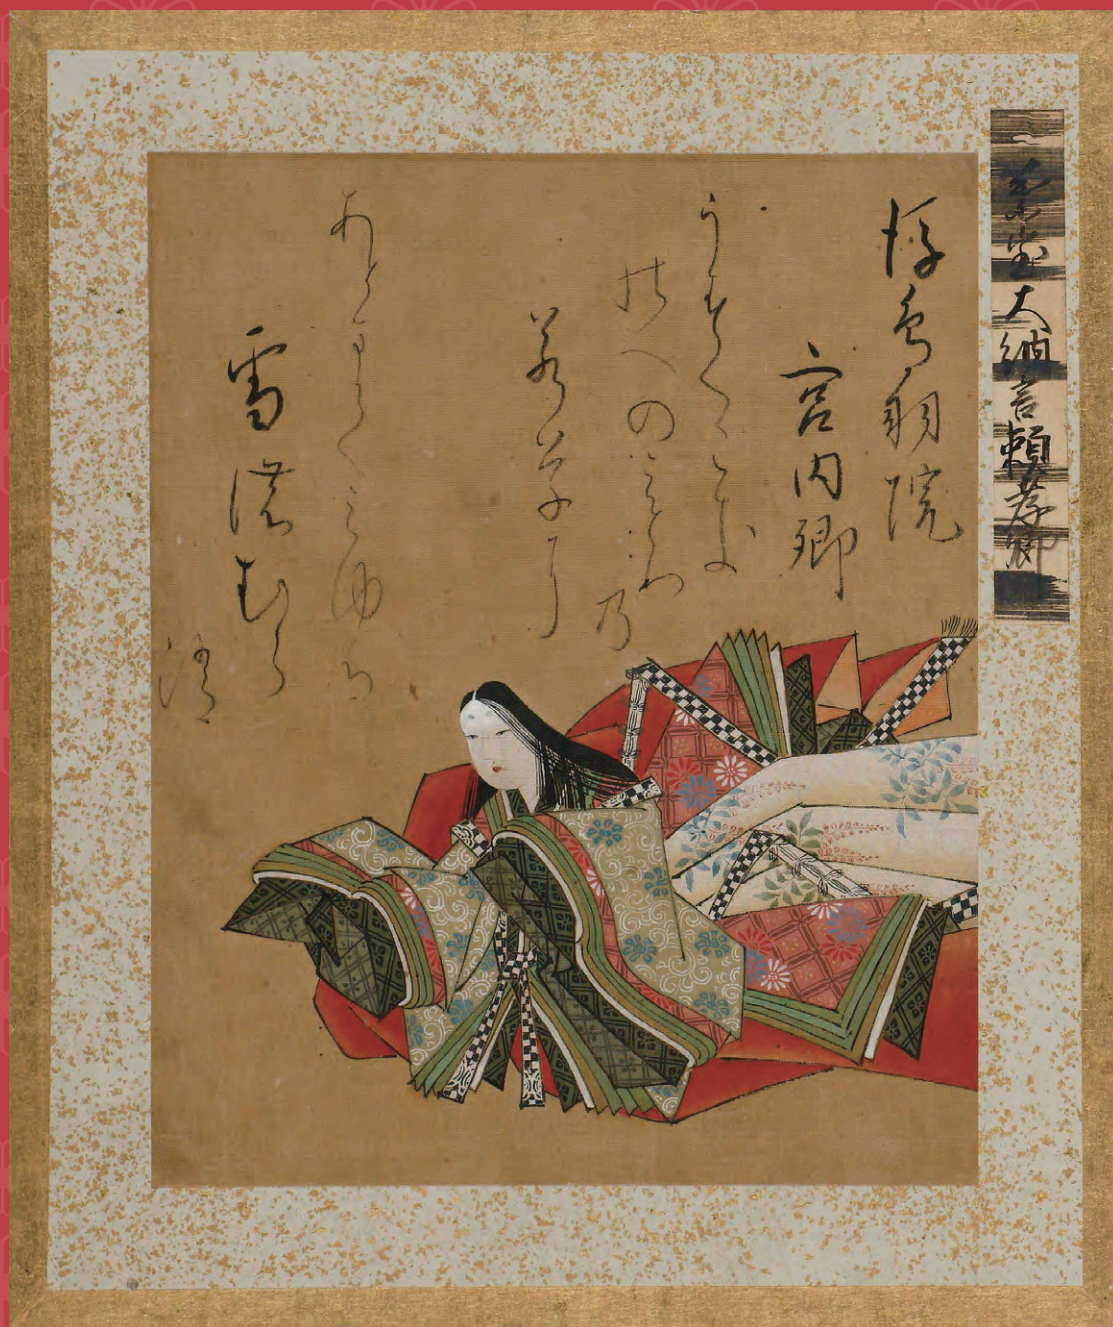 葉室大納言頼孝卿
後鳥羽院
宮内卿
うすくこき
のへのみとり
乃
若草に
あとまてみゆる
雪のむら
消